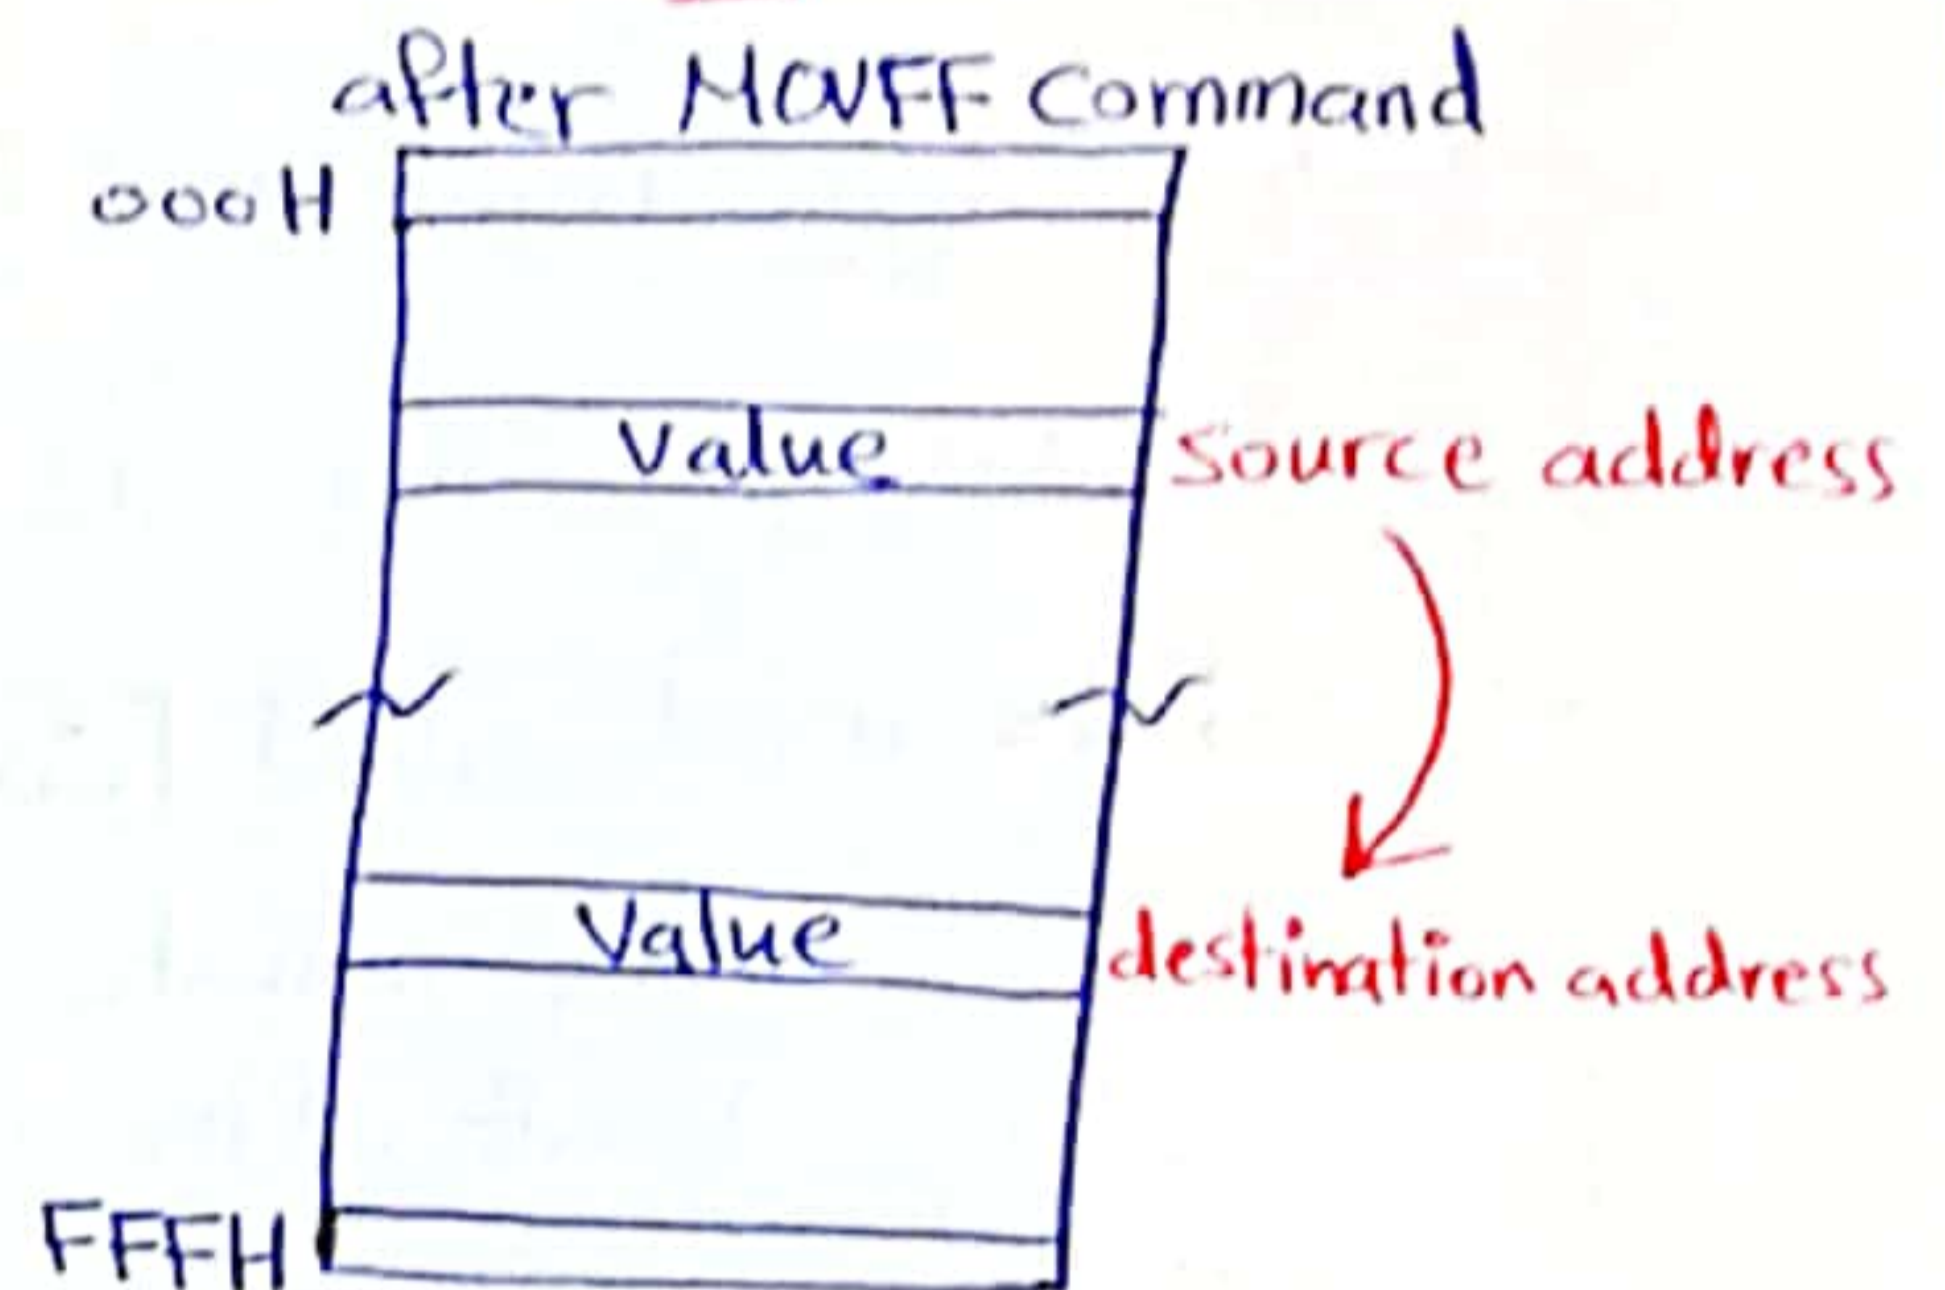 after MOVFF Command
000H
Value
Source address
Value
destination address
FFFH